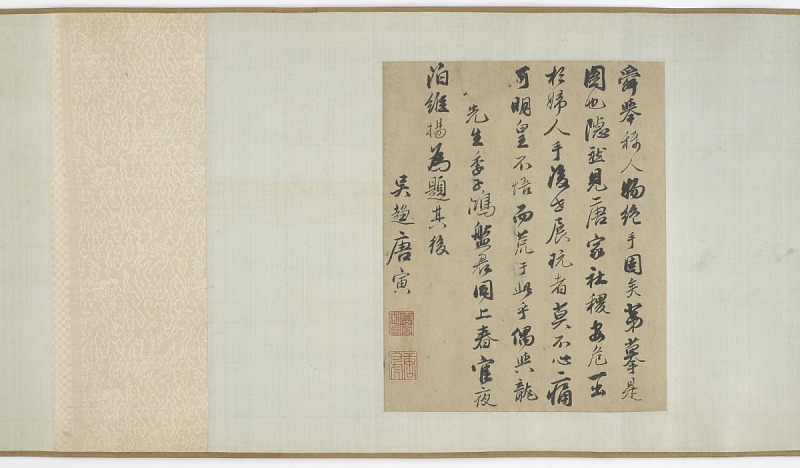 舜舉稱人物絕手固矣第摹是
圖也隱然見唐家社稷安危出
於婦人手後世展玩者莫不心痛
明皇不悟而荒于此乎偶與龍
先生季子鴻盤君同上春官夜
泊維揚為題其後
吳趨唐寅